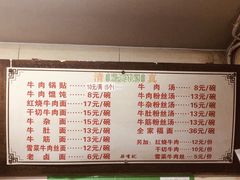 清真
牛肉锅贴——10元/两(5个)
牛肉馄饨——8元/碗
红烧牛肉面——13元/碗
干切牛肉面——13元/碗
牛杂面——15元/碗
牛肚面——15元/碗
牛筋面——15元/碗
雪菜牛肉丝面——12元/碗
老卤面——6元/碗
牛肉汤——8元/碗
牛肉粉丝汤——12元/碗
牛杂粉丝汤——15元/碗
牛肚粉丝汤——15元/碗
牛筋粉丝汤——15元/碗
全家福面——36元/碗
另加:红烧牛肉——12元/份
干切牛肉——10元/份
雪菜牛肉丝——9元/份